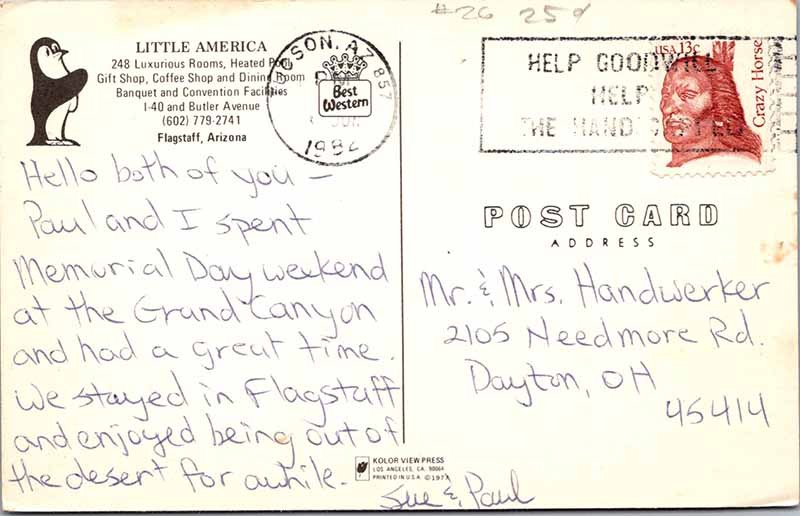 #26 25¢
LITTLE AMERICA
248 Luxurious Rooms, Heated Pool
Gift Shop, Coffee Shop and Dining Room
Banquet and Convention Facilities
I-40 and Butler Avenue
(602) 779-2741
Flagstaff, Arizona
Best
Western
SON, AZ 857
1982
HELP GOODWILL
HELP
THE HANDICAPPED
USA 13c
Crazy Horse
Hello both of you –
Paul and I spent
Memorial Day weekend
at the Grand Canyon
and had a great time.
We stayed in Flagstaff
and enjoyed being out of
the desert for awhile.
Sue & Paul
POST CARD
ADDRESS
Mr. & Mrs. Handwerker
2105 Needmore Rd.
Dayton, OH
45414
KOLOR VIEW PRESS
LOS ANGELES, CA. 90064
PRINTED IN U.S.A. ©1977